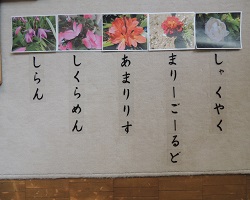 しゃくやく
まりーごーるど
あまりりす
しくらめん
しらん